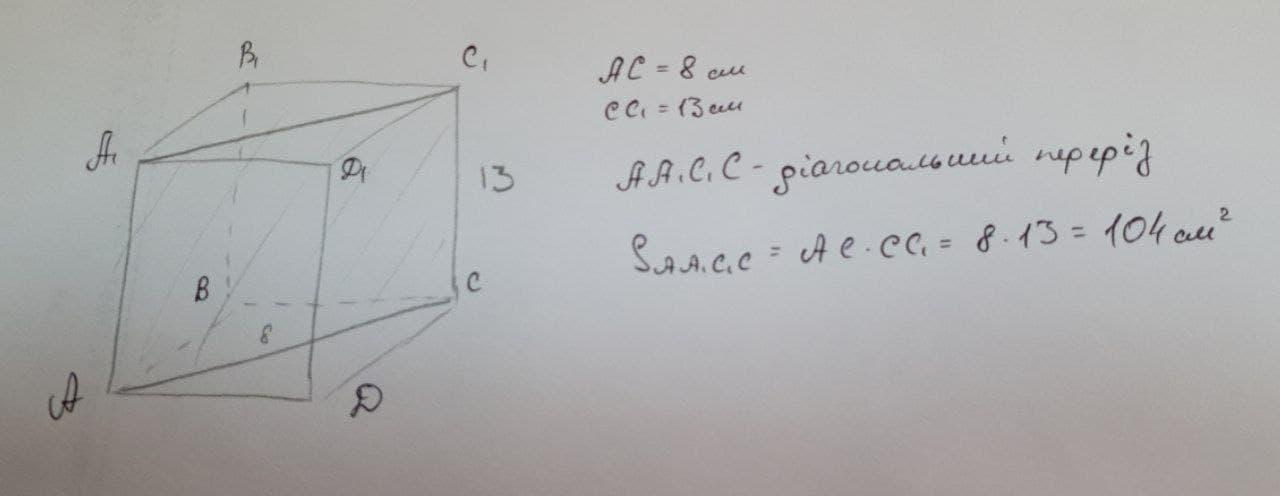 B₁
C₁
A₁
D₁
13
B
C
8
A
D
AC = 8 см
CC₁ = 13 см
AA₁C₁C - діагональний переріз
S AA₁C₁C = AC · CC₁ = 8 · 13 = 104 см²